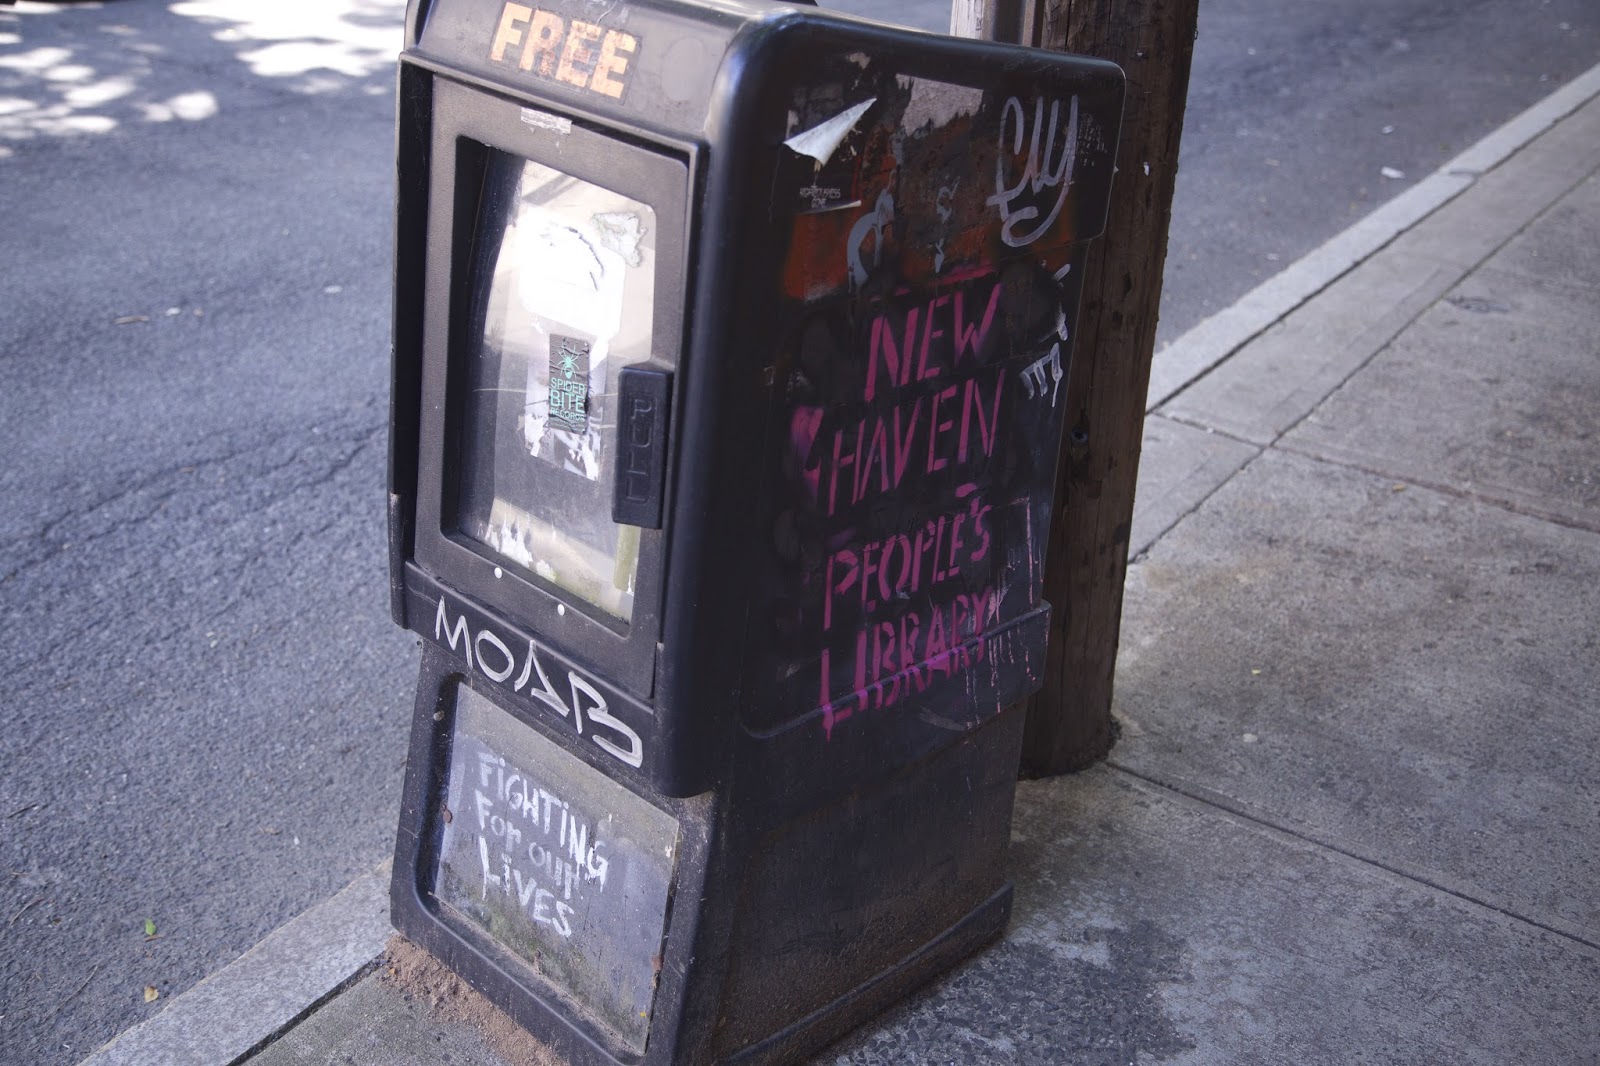 FREE
SPIDER
BITE
RECORDS
PULL
MOAB
FiGHTiNG
For our
LiVES
NEW
HAVEN
PEOPLE'S
LIBRARY